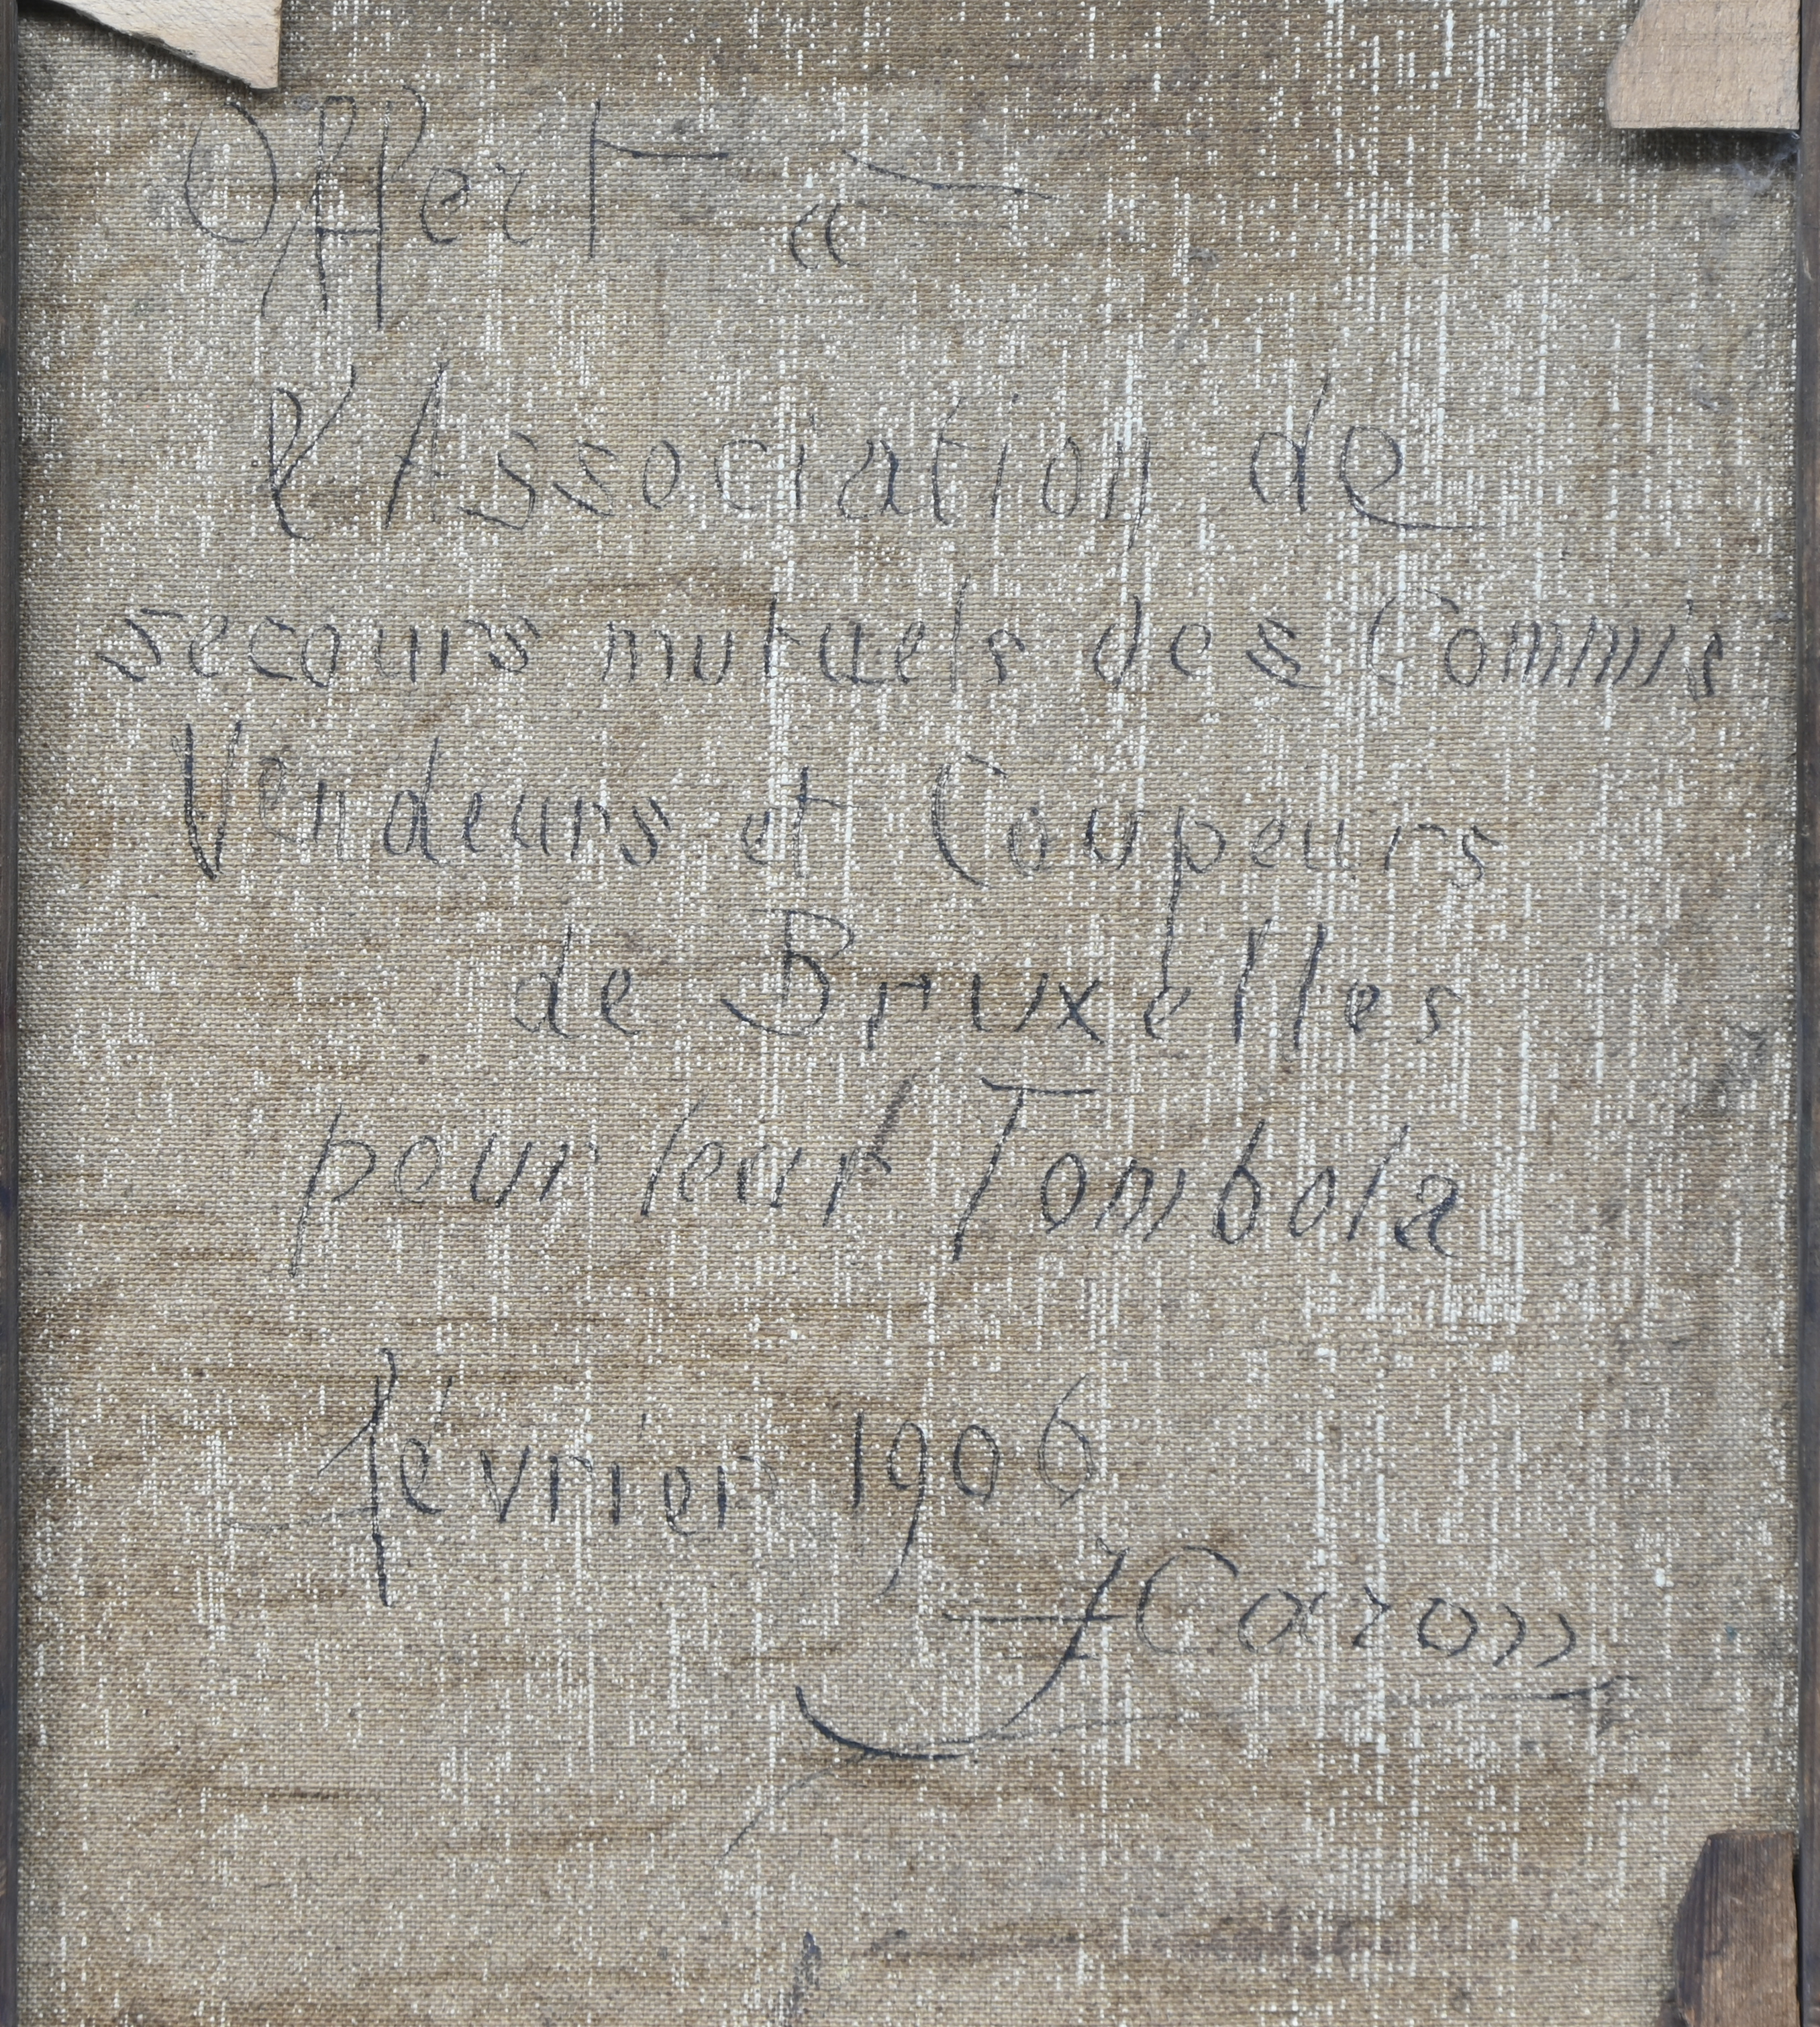 Offert à
l'Association de
secours mutuels des Commis
Vendeurs et Coupeurs
de Bruxelles
pour leur Tombola
février 1906
J Caron